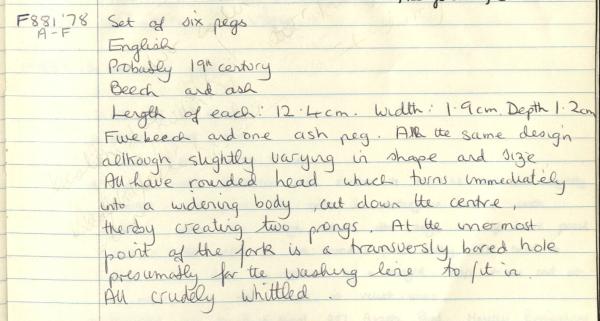 F881'78 Set of six pegs
A-F
English
Probably 19th century
Beech and ash
Length of each: 12.4cm. Width: 1.9cm. Depth 1.2cm
Five beech and one ash peg. All the same design
although slightly varying in shape and size
All have rounded head which turns immediately
into a widening body, cut down the centre,
thereby creating two prongs. At the innermost
point of the fork is a transversly bored hole
presumably for the washing line to fit in.
All crudely whittled.